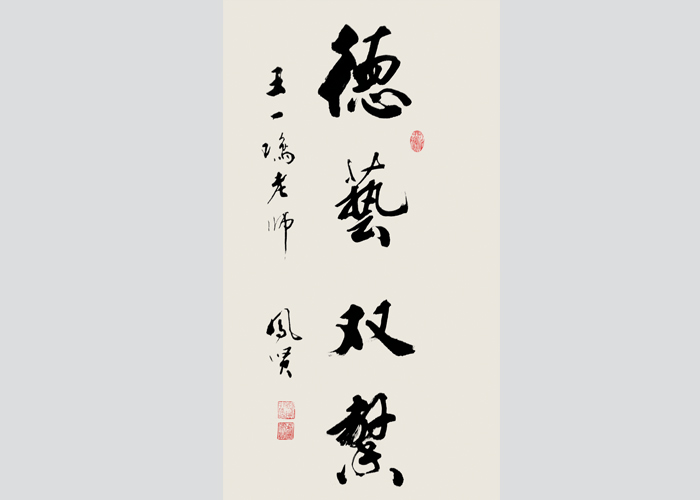 德藝双馨
王一老师
鳳贤